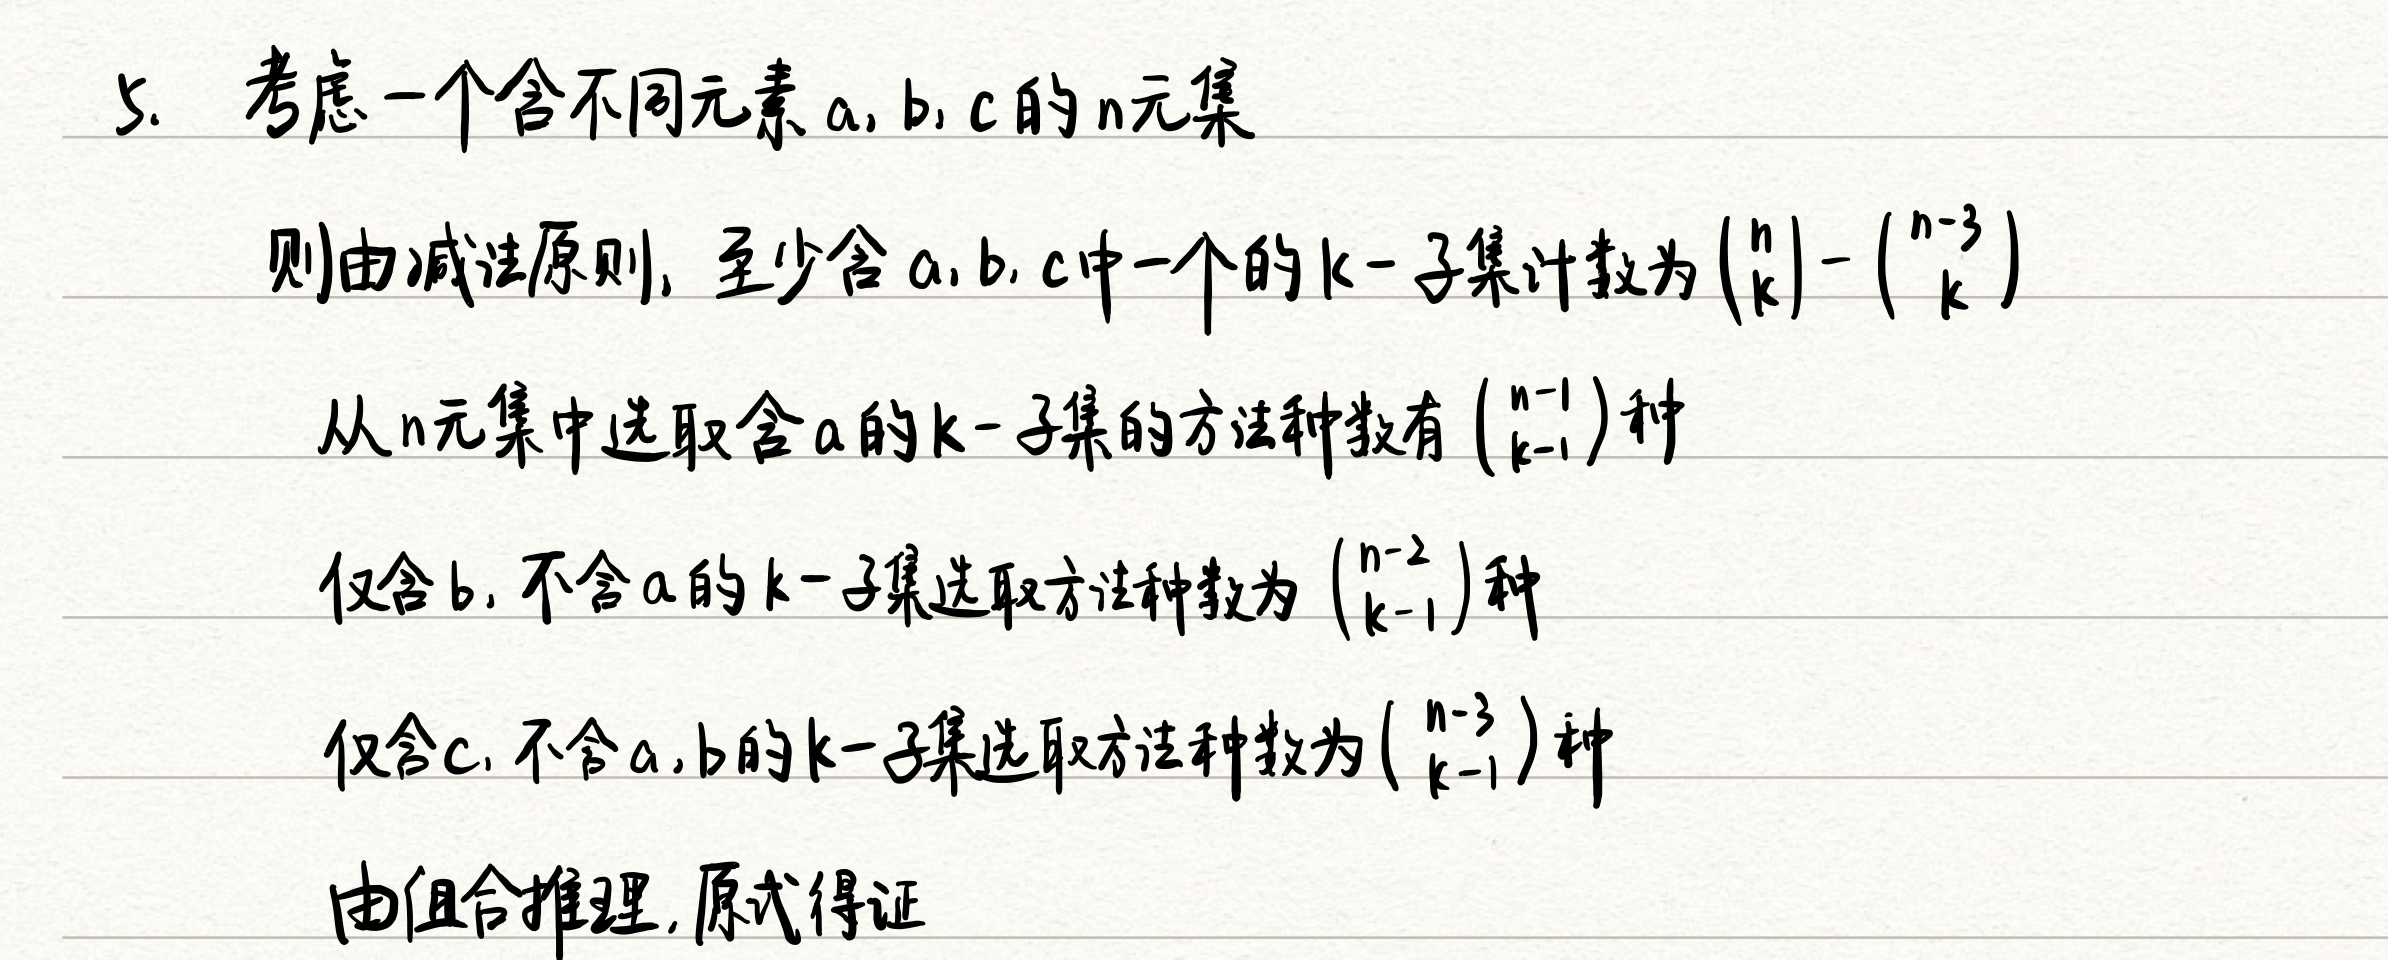 5. 考虑一个含不同元素 a, b, c 的 n元集
则由减法原则, 至少含 a, b, c中一个的 k-子集计数为 $\binom{n}{k} - \binom{n-3}{k}$
从n元集中选取含a的k-子集的方法种数有 $\binom{n-1}{k-1}$ 种
仅含b, 不含a的k-子集选取方法种数为 $\binom{n-2}{k-1}$ 种
仅含c, 不含a,b的k-子集选取方法种数为 $\binom{n-3}{k-1}$ 种
由组合推理, 原式得证